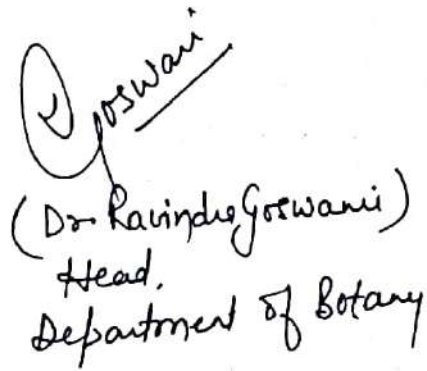 Goswami
(Dr. Ravindra Goswami)
Head,
Department of Botany